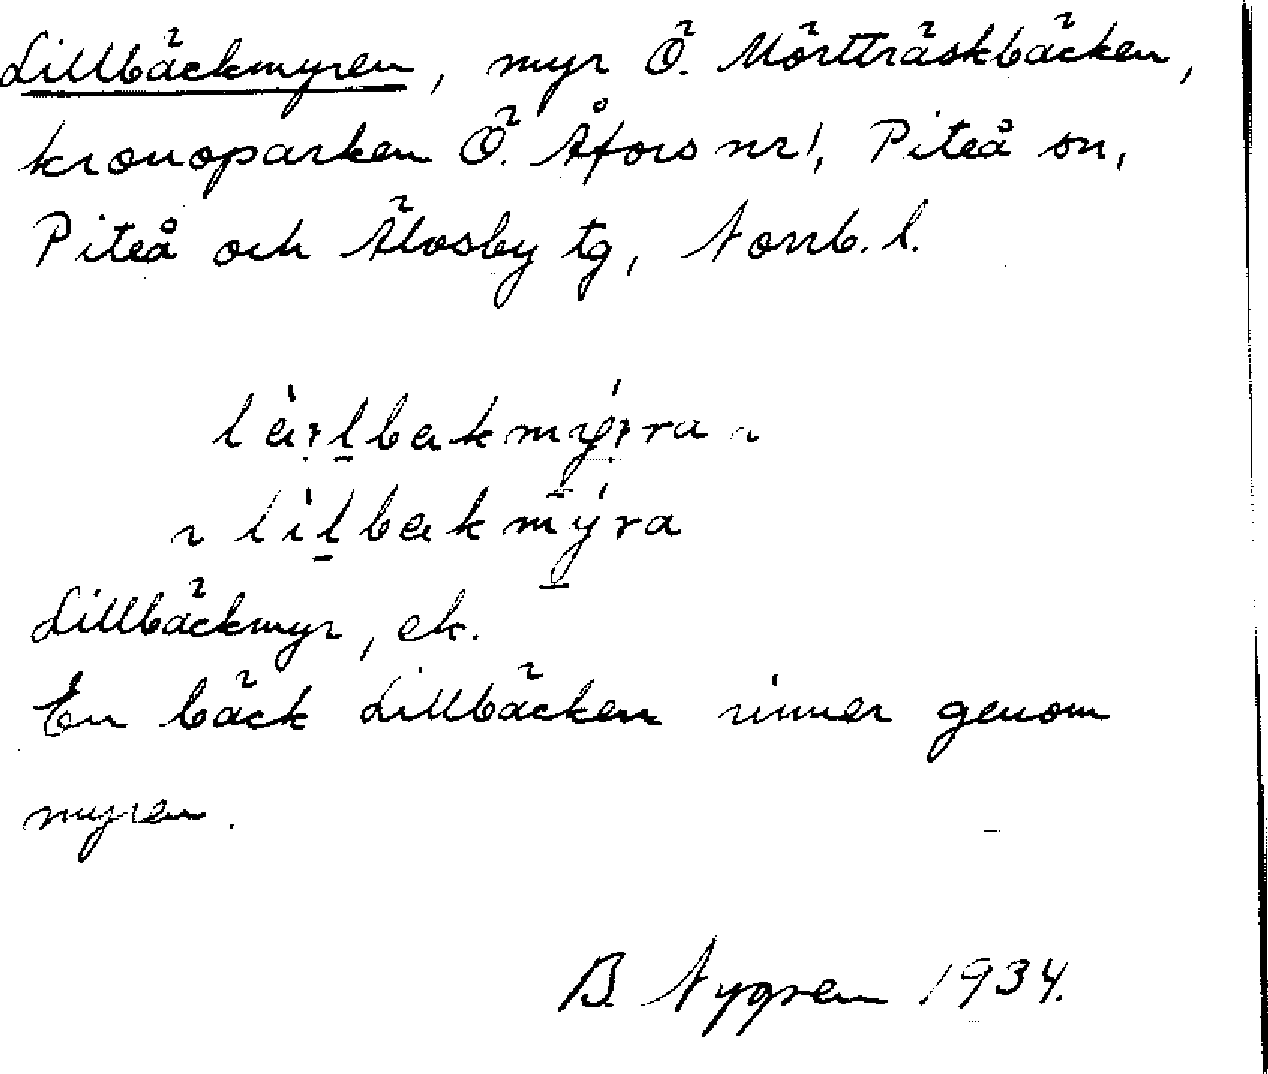 Lillbäckmyren, myr Ö. Mörtträskbäcken,
kronoparken Ö. Åfors nr 1, Piteå sn,
Piteå och Älvsby tg, Norrb. l.
~ lìl̠bakmýra
Lillbäckmyr, ek.
En bäck Lillbäcken rinner genom
myren.
B. Nygren 1934.